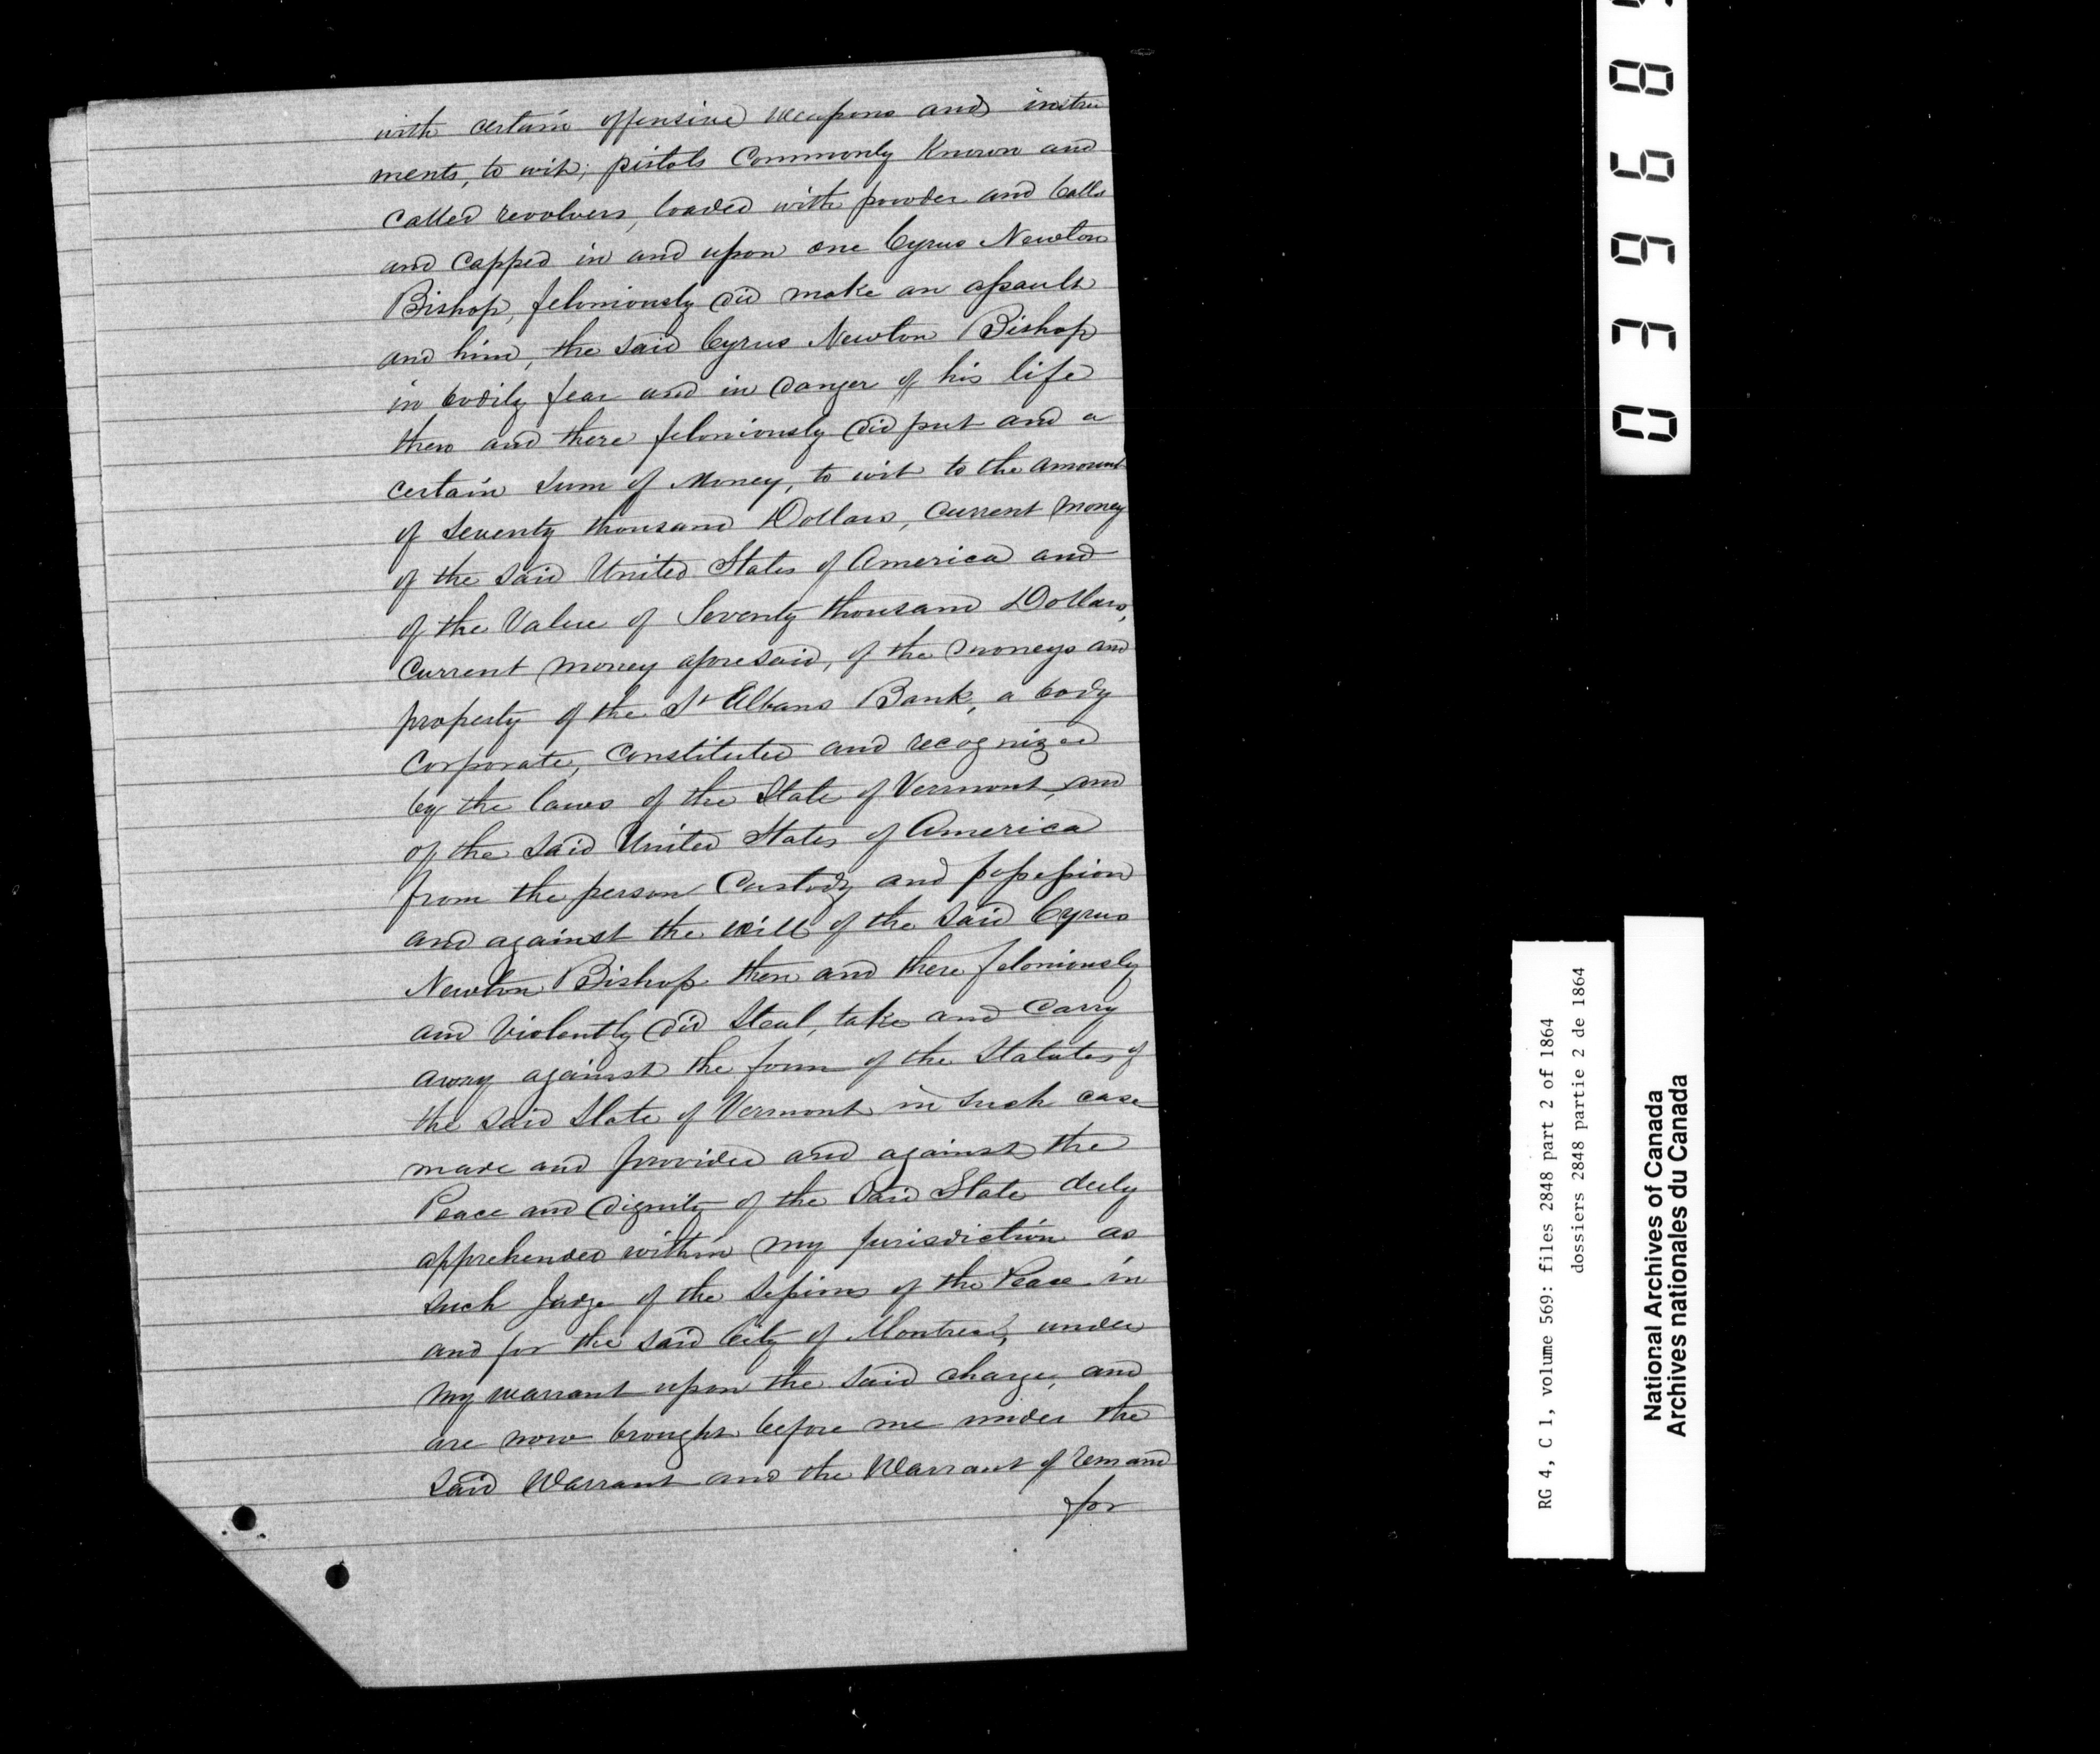 with certain offensive weapons and instru
ments, to wit; pistols Commonly Known and
Called revolvers, loaded with powder and balls
and Capped in and upon one Cyrus Newton
Bishop, feloniously did make an assault
and him, the said Cyrus Newton Bishop
in bodily fear and in danger of his life
then and there feloniously did put and a
certain sum of Money, to wit to the amount
of Seventy thousand Dollars, Current money
of the said United States of America and
of the Value of Seventy thousand Dollars,
Current money aforesaid, of the moneys and
property of the St Albans Bank, a body
Corporate, Constituted and recognized
by the laws of the State of Vermont, and
of the said United States of America
from the person Custody and possession
and against the will of the said Cyrus
Newton Bishop then and there feloniously
and Violently did Steal, take and Carry
away against the form of the Statutes of
the said State of Vermont in such case
made and provided and against the
Peace and dignity of the said State duly
apprehended within my jurisdiction as
such Judge of the Sessions of the Peace in
and for the said City of Montreal, under
my warrant upon the said charge, and
are now brought before me under the
said Warrant and the Warrant of remand
for
03968
RG 4, C 1, volume 569: files 2848 part 2 of 1864
dossiers 2848 partie 2 de 1864
National Archives of Canada
Archives nationales du Canada